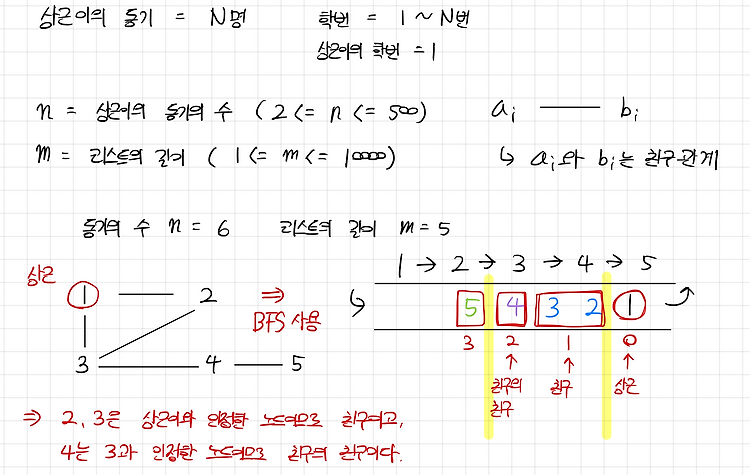 상근이의 동기 = N명
학번 = 1 ~ N번
상근이의 학번 = 1
n = 상근이의 동기의 수 ( 2 <= n <= 500)
a i — b i
m = 리스트의 길이 ( 1 <= m <= 10000)
↳ a i 와 b i 는 친구관계
동기의 수 n = 6
리스트의 길이 m = 5
상근
1 — 2
3 — 4 — 5
⇒
BFS 사용
1 → 2 → 3 → 4 → 5
5 4 3 2 1
3 2 1 0
↑ ↑ ↑
친구의 친구
친구
상근
⇒ 2, 3은 상근이와 인접한 노드이므로 친구이고,
4는 3과 인접한 노드이므로 친구의 친구이다.